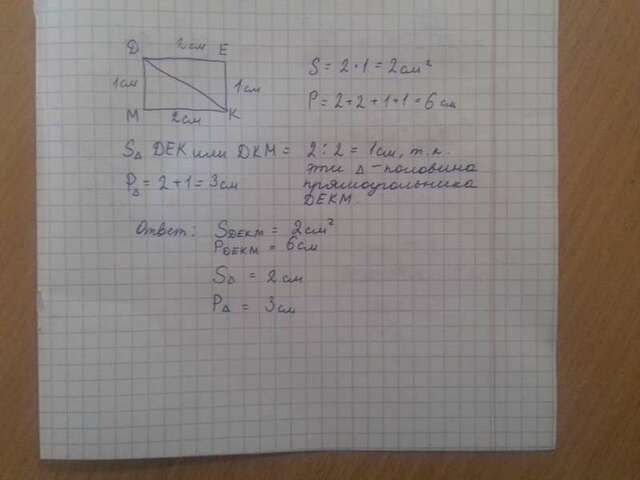 D 2см E
1см
1см
M 2см K
S = 2 · 1 = 2см²
P = 2 + 2 + 1 + 1 = 6 см
S△ DEK или DKM = 2 : 2 = 1см, т.к.
эти △ - половина
прямоугольника
DEKM.
P△ = 2 + 1 = 3см
Ответ: SDEKM = 2см²
PDEKM = 6см
S△ = 2см
P△ = 3см